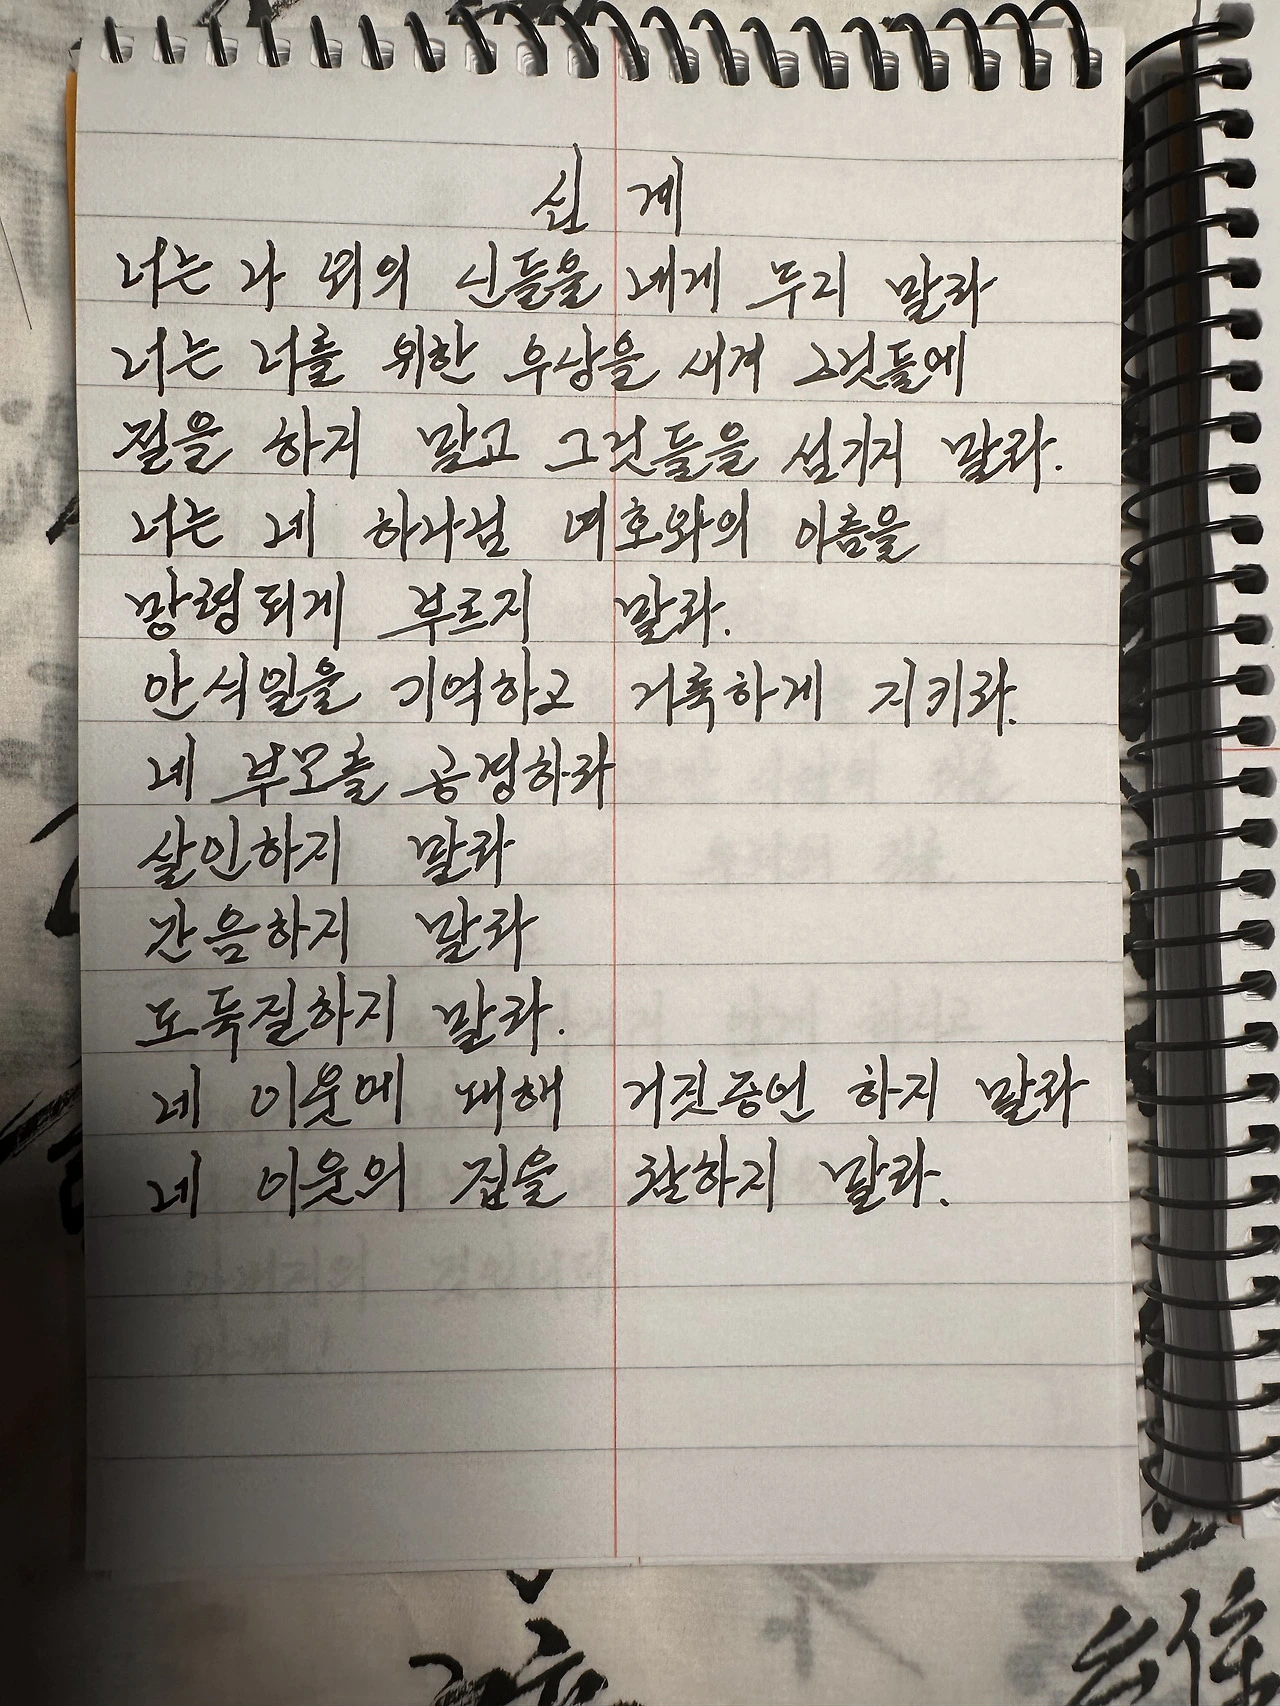 십 계
너는 나 외의 신들을 네게 두지 말라
너는 너를 위한 우상을 새겨 그것들에
절을 하지 말고 그것들을 섬기지 말라.
너는 네 하나님 여호와의 이름을
망령되게 부르지 말라.
안식일을 기억하고 거룩하게 지키라.
네 부모를 공경하라
살인하지 말라
간음하지 말라
도둑질하지 말라.
네 이웃에 대해 거짓증언 하지 말라
네 이웃의 집을 탐하지 말라.